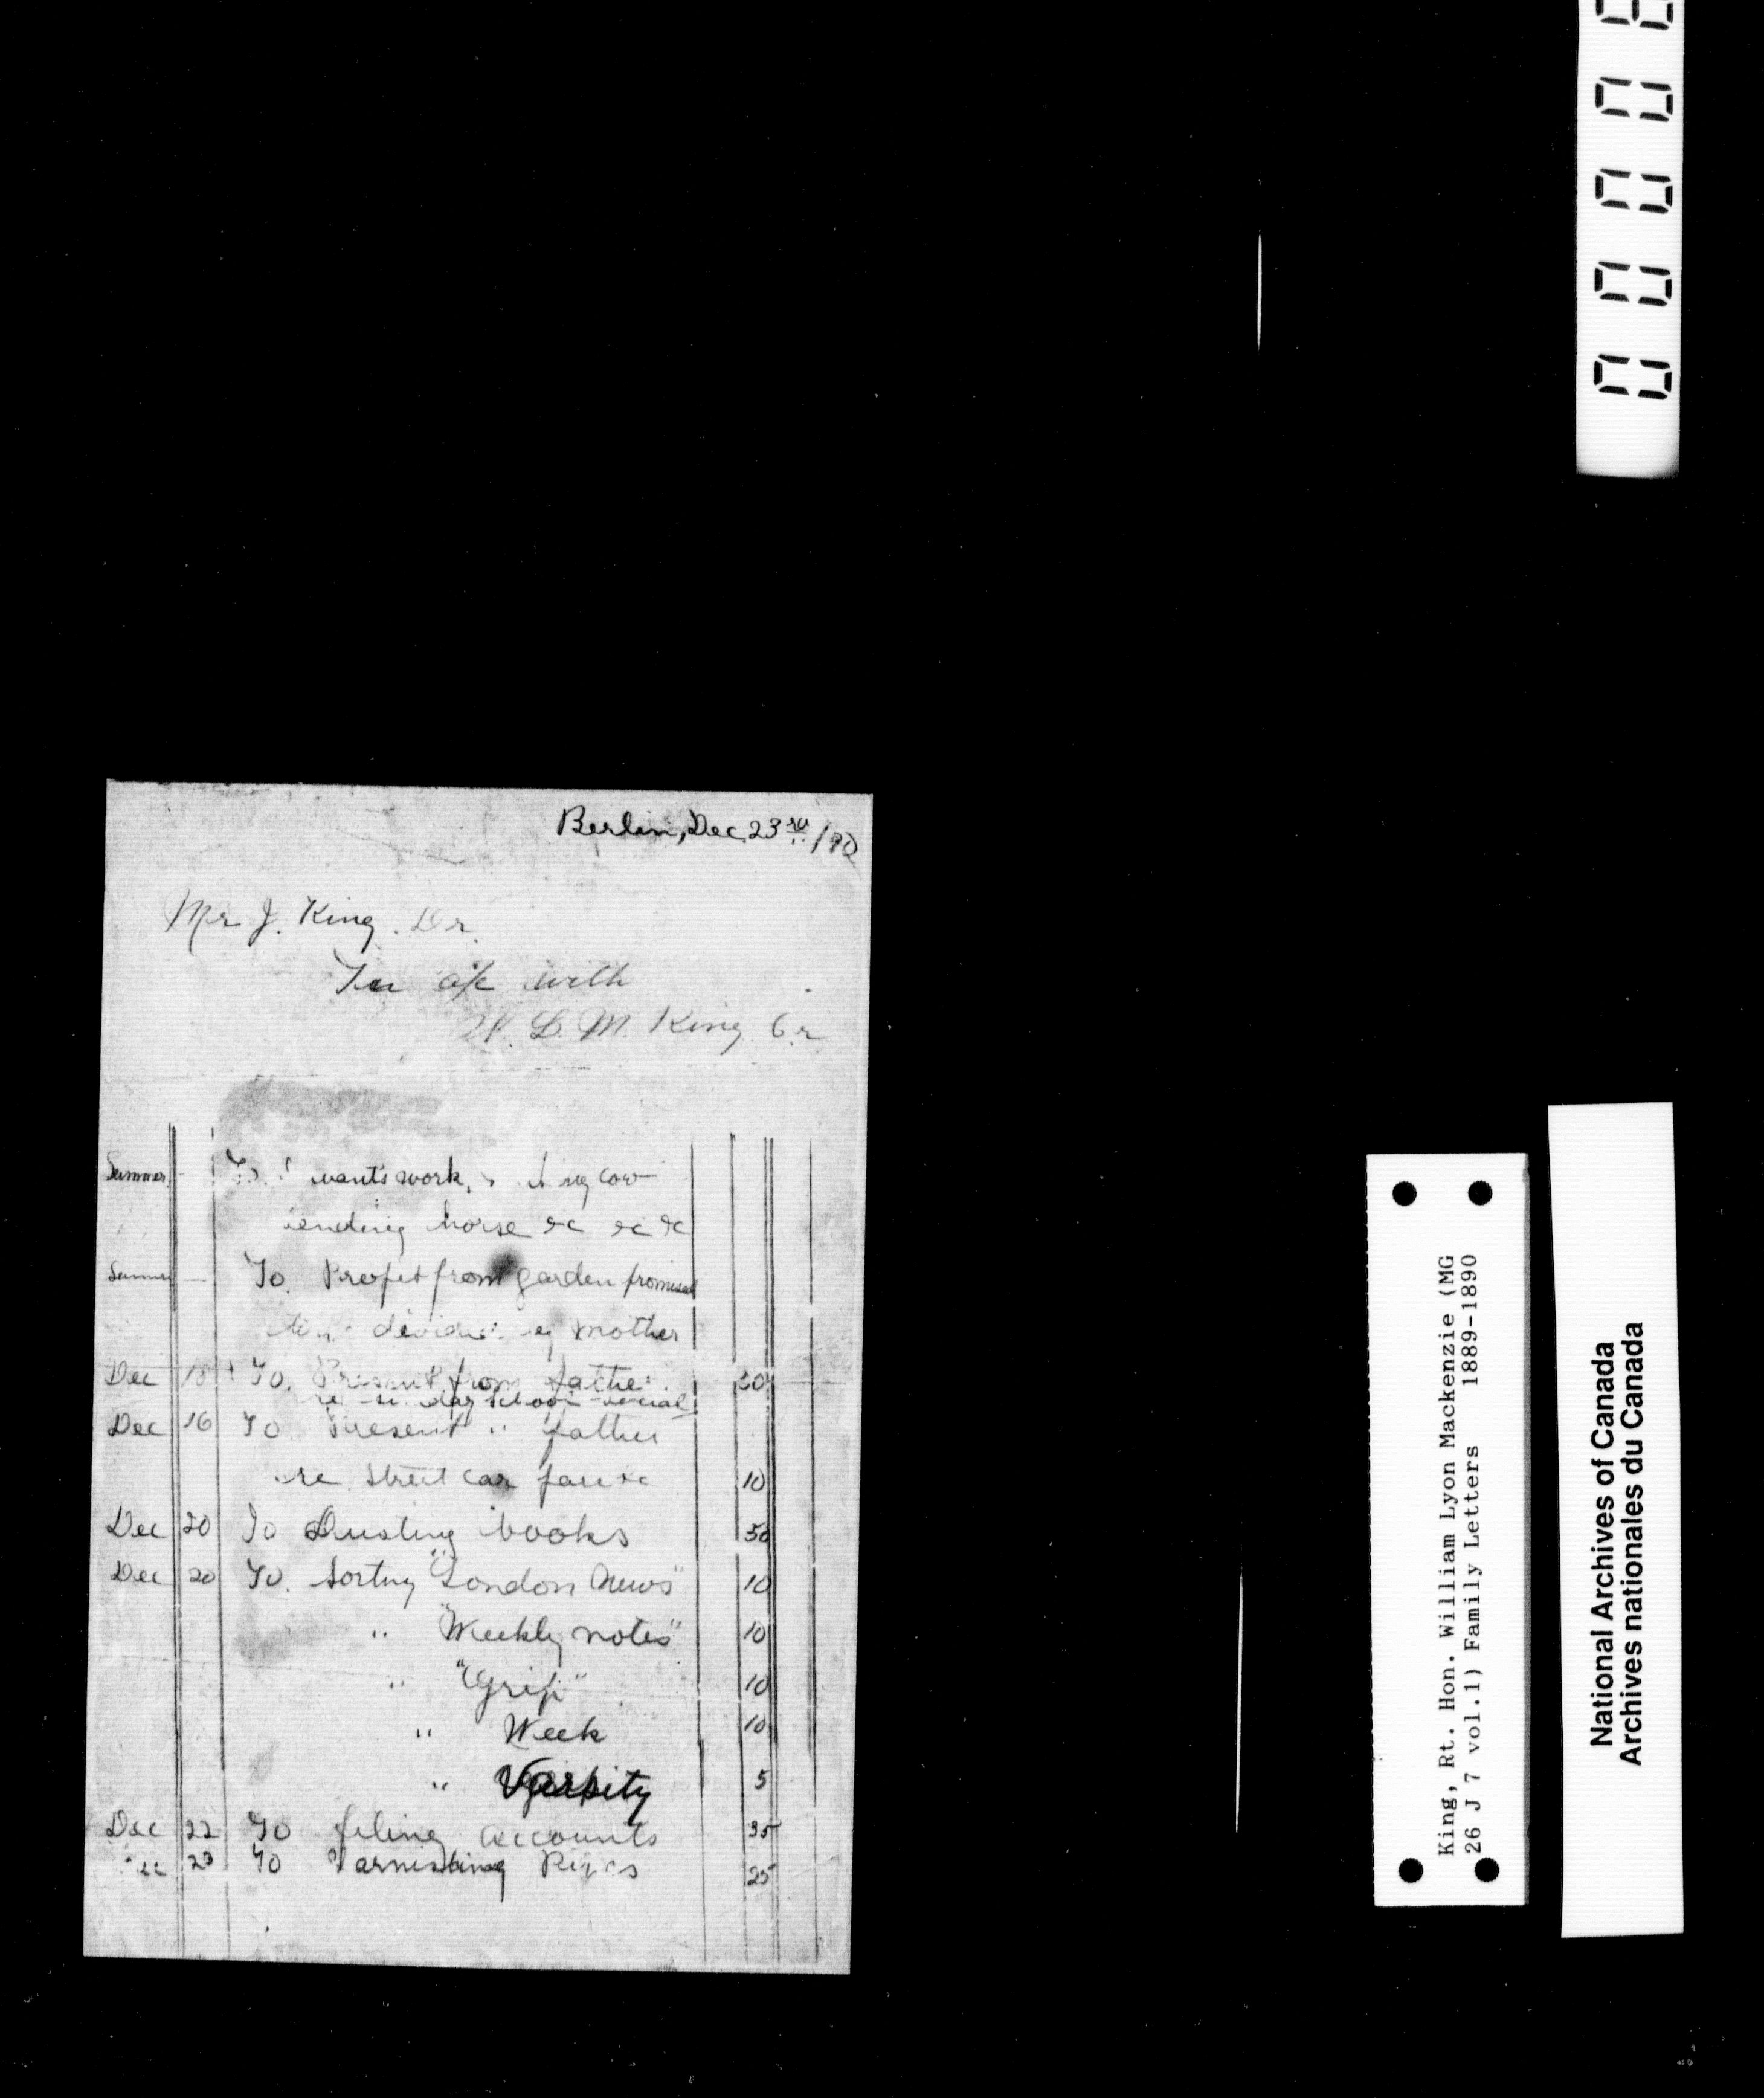 Berlin, Dec 23rd /90
Mr J. King. Dr.
In a/c with
W. L. M. King Cr
Summer To wants work, cow
tending horse &c &c &c
Summer — To. Profit from garden promised
mother
Dec 18 To. Present from father 20
re school social
Dec 16 To Present " father
re street car fare &c 10
Dec 20 To Dusting books 50
Dec 20 To. Sorting "London News" 10
" "Weekly notes" 10
" "Grip" 10
" Week 10
" Varsity 5
Dec 22 To filing accounts 35
23 To Varnishing 25
King, Rt. Hon. William Lyon Mackenzie (MG
26 J 7 vol.1) Family Letters 1889-1890
National Archives of Canada
Archives nationales du Canada